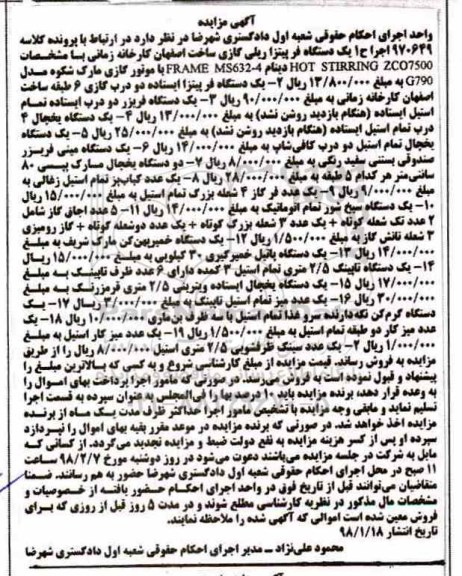 آگهی مزایده
واحد اجرای احکام حقوقی شعبه اول دادگستری شهرضا در نظر دارد در ارتباط با پرونده کلاسه
۹۷۰۶۴۹ اجرا ح۱ یک دستگاه فر پیتزا ریلی گازی ساخت اصفهان کارخانه زمانی بـا مشخصات
HOT STIRRING ZCO7500 دینام FRAME MS632-4 با موتور گازی مارک شکوه مـدل
G790 به مبلغ ۱۳/۸۰۰/۰۰۰ ریال ۲- یک دستگاه فر پیتزا ایستاده دو درب گازی ۶ طبقه ساخت
اصفهان کارخانه زمانی به مبلغ ۹۰/۰۰۰/۰۰۰ ریال ۳- یک دستگاه فریزر دو درب ایستاده تمـام
استیل ایستاده (هنگام بازدید روشن نشد) به مبلغ ۱۳/۰۰۰/۰۰۰ ریال ۴- یک دستگاه یخچال ۴
درب تمام استیل ایستاده (هنگام بازدید روشن نشد) به مبلغ ۲۵/۰۰۰/۰۰۰ ریال ۵- یک دستگاه
یخچال تمام استیل دو درب کافی‌شاپ به مبلغ ۱۴/۰۰۰/۰۰۰ ریال ۶- یک دستگاه مینی فریـزر
صندوقی بستنی سفید رنگی به مبلغ ۸/۰۰۰/۰۰۰ ریال ۷- دو دستگاه یخچال مبارک پیسی ۸۰
سانتی‌متر هر کدام ۵ طبقه به مبلغ ۲۸/۰۰۰/۰۰۰ ریال ۸- یک عدد کباب‌پز تمام استیل زغالی به
مبلغ ۹/۰۰۰/۰۰۰ ریال ۹- یک عدد فر گاز ۴ شعله بزرگ تمام استیل به مبلغ ۱۵/۰۰۰/۰۰۰ ریال
۱۰- یک دستگاه سیخ شور تمام اتوماتیک به مبلغ ۱۴/۰۰۰/۰۰۰ ریال ۱۱- ۵ عدد اجاق گاز شامل
۲ عدد تک شعله کوتاه + یک عدد ۳ شعله بزرگ کوتاه + یک عدد دوشعله کوتاه + گاز رومیزی
۳ شعله تانش گاز به مبلغ ۱/۵۰۰/۰۰۰ ریال ۱۲- یک دستگاه خمیرپهن‌کن مارک شریف به مبلـغ
۱۴/۰۰۰/۰۰۰ ریال ۱۳- یک دستگاه پاتیل خمیرگیری ۳۰ کیلویی به مبلـغ ۱۵/۰۰۰/۰۰۰ ریـال
۱۴- یک دستگاه تاپینگ ۲/۵ متری تمام استیل ۳ کمده دارای ۶ عدد ظرف تاپینـگ بـه مبلـغ
۱۷/۰۰۰/۰۰۰ ریال ۱۵- یک دستگاه یخچال ایستاده ویترینی ۲/۵ متری قرمزرنـگ بـه مبلـغ
۳۰/۰۰۰/۰۰۰ ریال ۱۶- یک عدد میز تمام استیل تاپینگ به مبلغ ۳/۰۰۰/۰۰۰ ریـال ۱۷- یـک
دستگاه گرم‌کن نگه‌دارنده سرو غذا تمام استیل به مبلغ ۱۰/۰۰۰/۰۰۰ ریال ۱۸- یک
عدد میز کار دو طبقه تمام استیل به مبلغ ۱/۵۰۰/۰۰۰ ریال ۱۹- یک عدد میز کار استیل به مبلـغ
۱/۰۰۰/۰۰۰ ریال ۲- یک عدد سینک ظرفشویی ۲/۵ متری استیل ۸/۰۰۰/۰۰۰ ریال را از طریق
مزایده به فروش رساند. قیمت مزایده از مبلغ کارشناسی شروع و به کسی که بـالاترین مبلـغ را
پیشنهاد و قبول نموده است به فروش می‌رسد. در صورتی که مامور اجرا پرداخت بهای امـوال را
به وعده قرار دهد، برنده مزایده باید ۱۰ درصد بها را فی‌المجلس به‌عنوان سپرده به قسمت اجرا
تسلیم نماید و مابقی وجه مزایده با تشخیص مامور اجرا حداکثر ظرف مدت یـک مـاه از برنـده
مزایده اخذ خواهد شد. در صورتی که برنده مزایده در موعد مقرر بقیه بهای اموال را نپـردازد
سپرده او پس از کسر هزینه مزایده به نفع دولت ضبط و مزایده تجدید می‌گردد. از کسانی کـه
مایل به شرکت در جلسه مزایده می‌باشند دعوت می‌شود در روز دوشنبه مورخ ۹۸/۲/۷ سـاعت
۱۱ صبح در محل اجرای احکام حقوقی شعبه اول دادگستری شهرضا حضور به هم رسانند. ضـمنا
متقاضیان می‌توانند قبل از تاریخ فوق در واحد اجرای احکـام حـضور یافتـه از خصوصیات و
مشخصات مال مذکور در نظریه کارشناسی مطلع شوند و در مدت ۵ روز قبل از روزی که بـرای
فروش معین شده است اموالی که آگهی شده را ملاحظه نمایند.
تاریخ انتشار ۹۸/۱/۱۸
محمود علی‌نژاد ــ مدیر اجرای احکام حقوقی شعبه اول دادگستری شهرضا